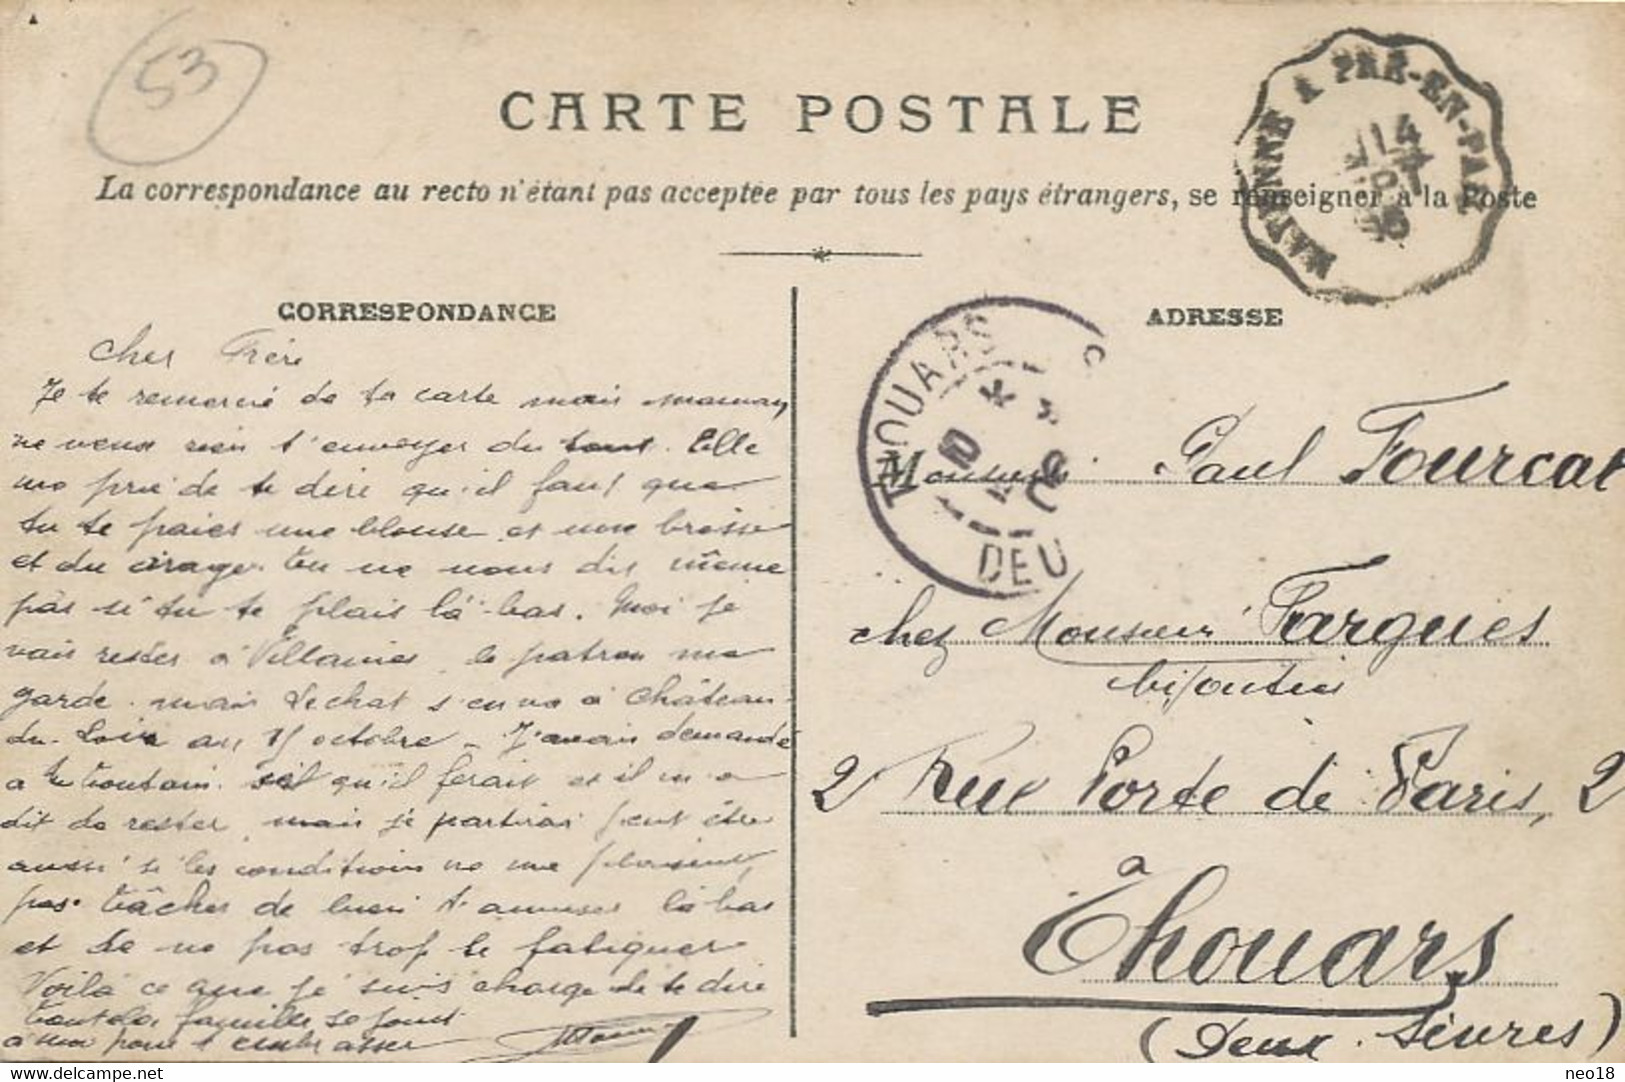 53
CARTE POSTALE
La correspondance au recto n'étant pas acceptée par tous les pays étrangers, se renseigner à la Poste
MAYENNE A PRÉ-EN-PAIL
14
CORRESPONDANCE
ADRESSE
THOUARS
DEU
cher Frère
Je te remercie de ta carte mais maman
ne veux rien t'envoyer du tout. Elle
me prie de te dire qu'il faut que
tu te paies une blouse et une brosse
et du cirage. tu ne nous dis même
pas si tu te plais là-bas. Moi je
vais rester à Villaines le patron me
garde. mais Lechat s'en va à Château-
du-Loir au 15 octobre - J'avais demandé
a qu'il ferait et il m'a
dit de rester mais je partirai peut être
aussi si les conditions ne me plaisent
pas. tâches de bien t'amuser là bas
et de ne pas trop te fatiguer
Voilà ce que je suis chargé de te dire
toute la famille se joint
à moi pour t'embrasser
Monsieur Paul Fourcat
chez Monsieur Fargues
bijoutier
2 Rue Porte de Paris, 2
à
Thouars
(Deux-Sèvres)
delcampe.net
neo18